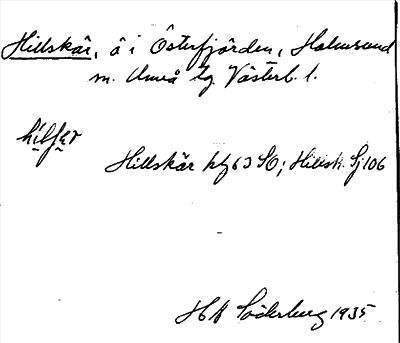 Hillskär, ö i Österfjärden, Holmsund
m. Umeå tg Västerb. l.
Hillskär kbl 63 SO; Hillsk. Sj 106
HN Söderberg 1935